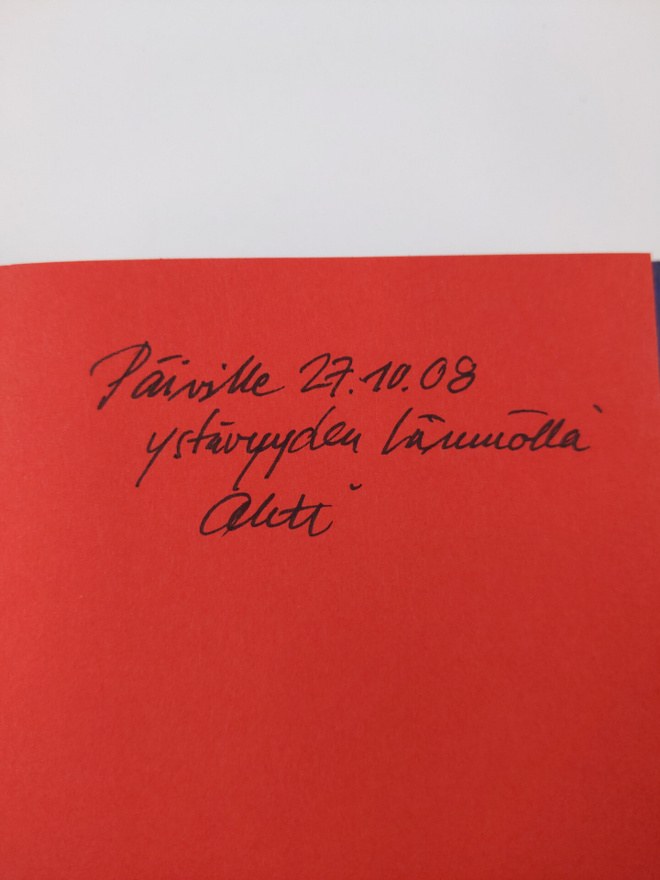 Päiville 27.10.08
ystävyyden lämmöllä
Ahti